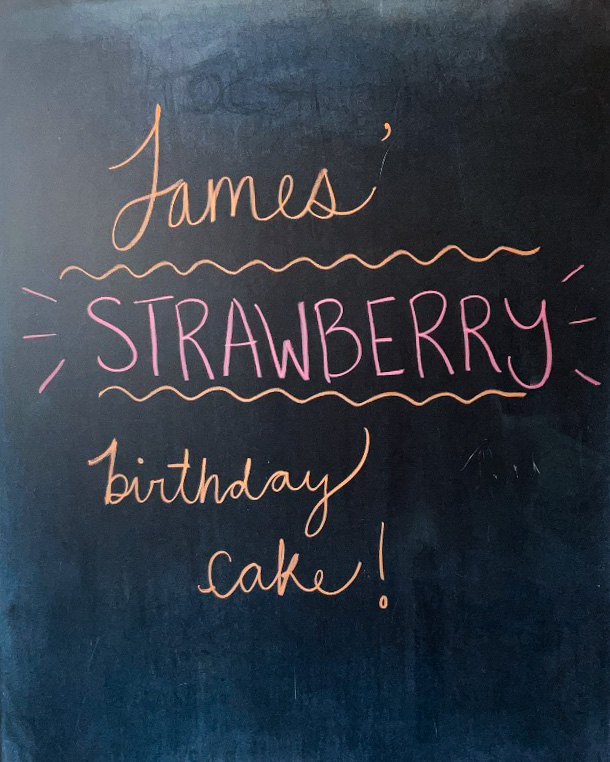 James'
STRAWBERRY
birthday
cake!